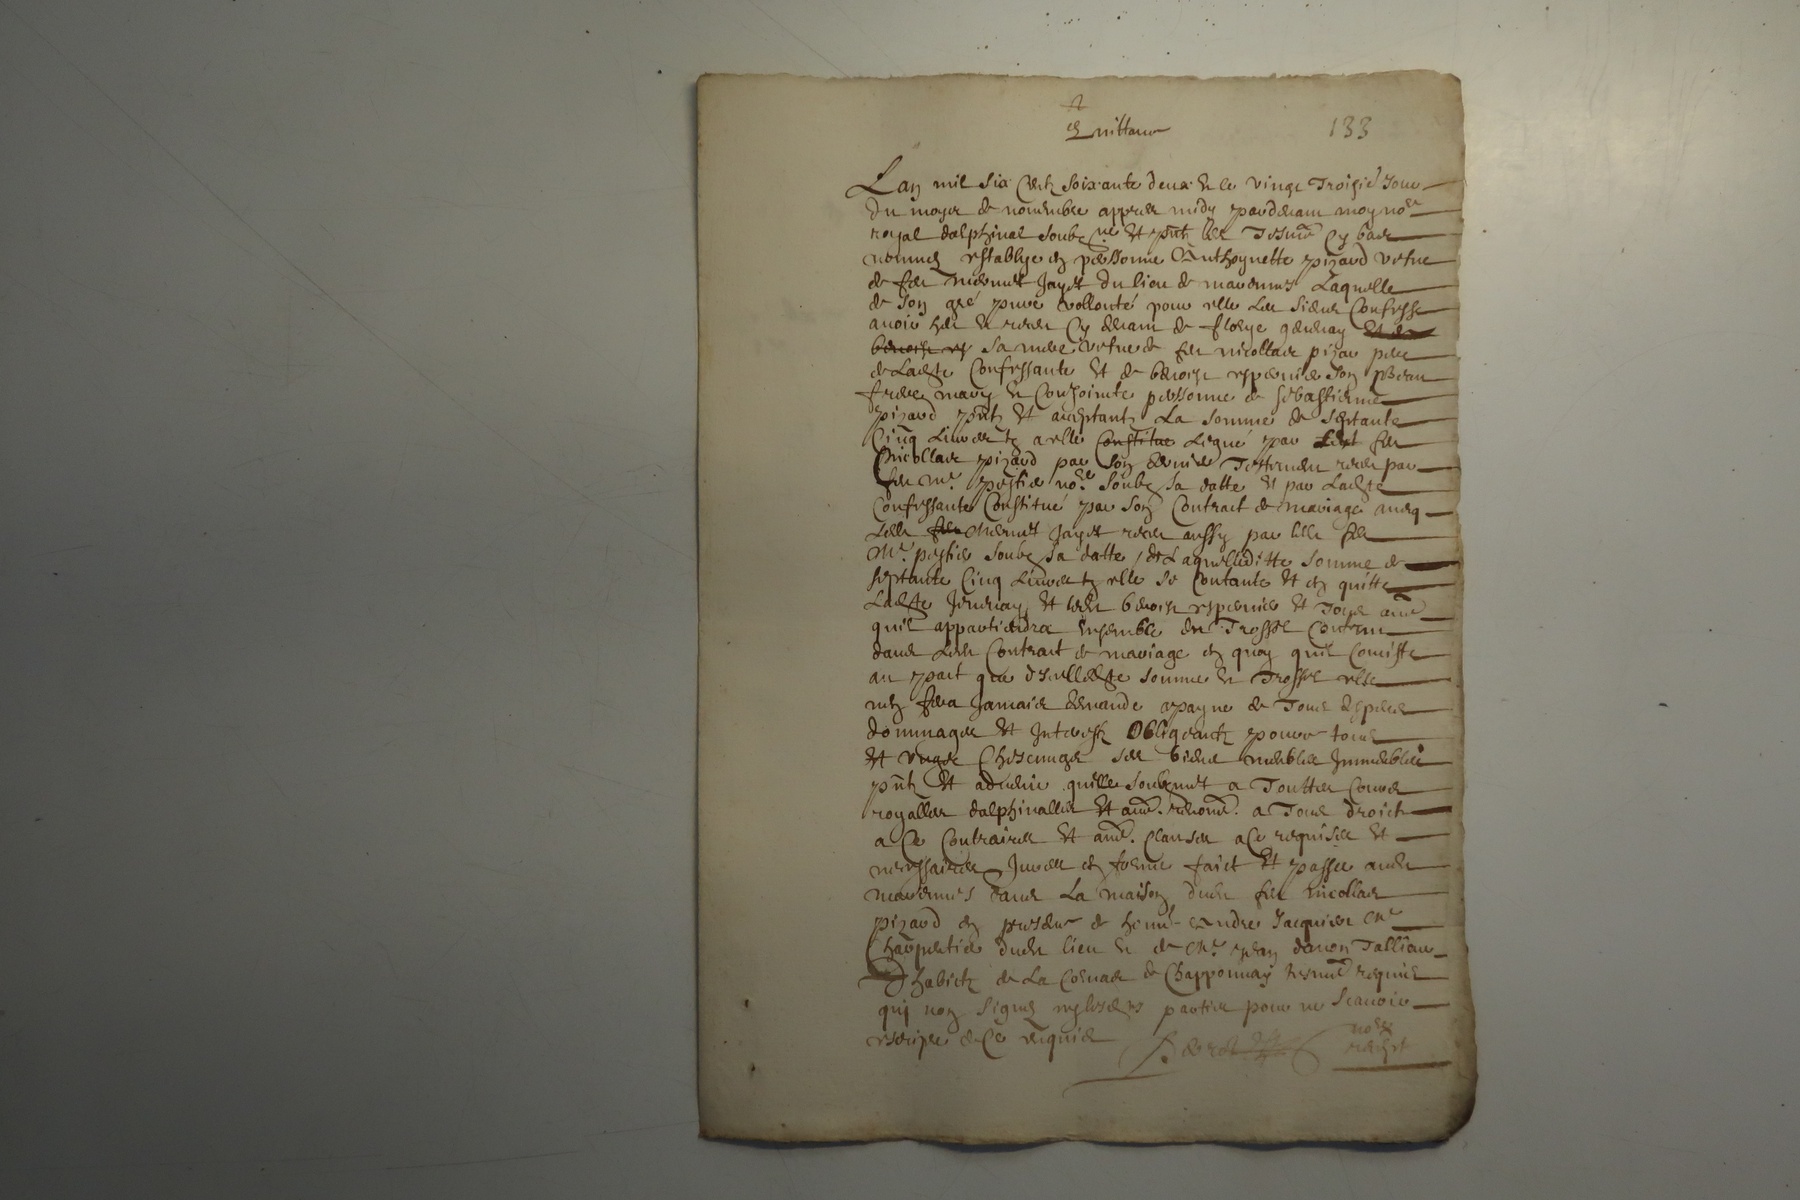 Quittance
133
Lan mil six centz soixante deux & le vingt troisie Jour
du moys de novembre appres midy pardevant moy nore
royal dalphinal soubzne & pntz les tesmoings cy bas
nommes establye en personne Anthoynette pizard vefve
de feu mermet Jayet du lieu de marennes Laquelle
de son gré pure vollonté pour elle les siens Confesse
avoir heu & receu cy devant de florye genevay et de
benoist es sa mere vefve de feu nicollas pizar pere
de Ladte Confessante et de benoist esparnier son beau
frere mary & Conjointe personne de sebastienne
pizard pntz et acceptantz La somme de septante
Cinq Livres tz a elle Constitue Legué par Ledt feu
Nicollas pizard par son dernier Testement receu par
feu me pestier nore soubz sa datte & par Ladte
Confessante Constitué par son Contract de mariage avecq
Ledt feu Mermet Jayet receu aussy par ledt feu
Me pestier soubz sa datte / de Laquelleditte somme de
septante Cinq Livres tz elle se Contante et en quitte
Ladte Jenevay et ledt benoist esparnier et Tous autres
quil appartiendra ensemble du Trossel Contenu
dans Ledt Contract de mariage en quoy quil Consiste
au pact que dycelledte somme & Trossel elle
nen fera Jamais demande a payne de Tous despens
dommages et Interestz Obligeantz pour tous
et ungs Chescungs ses biens meubles Immeubles
pntz et advenir quelle soubzmet a Touttes Cours
royalles dalphinalles et autres renont a Tous droictz
a Ce Contraires et autres Clauses a Ce requises et
necessaires Jures en forme faict et passe audt
marennes dans La maison dudt feu nicollas
pizard en presence de honn Andre Jacquier Me
Charpentier dudt lieu & de Me Jean Tallieur
habitz de La Corbas de Chapponnay tesmoings requis
qui non signes parties pour ne scavoir
escripre de Ce requis
nore
recept